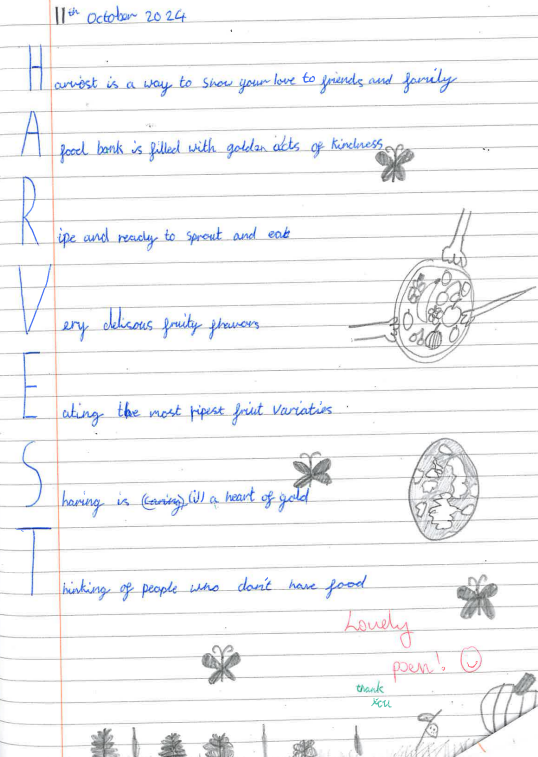 11th October 2024
Harvest is a way to show your love to friends and family
A food bank is filled with golden acts of kindness
Ripe and ready to sprout and eat
Very delisous fruity flavours
Eating the most ripest fruit variaties
Sharing is (caring) (ill) a heart of gold
Thinking of people who don't have food
Lovely
poem!
thank
you